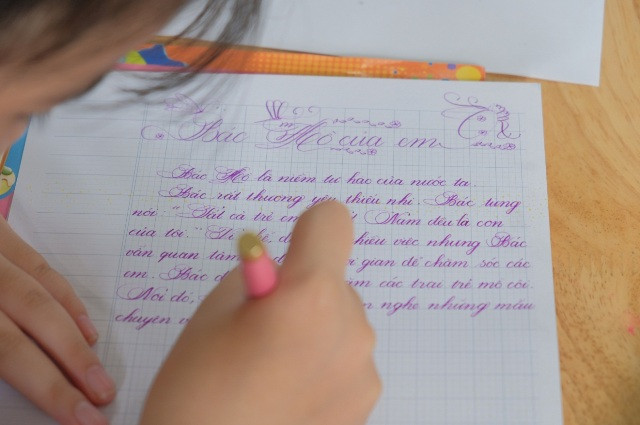 Bác Hồ của em
Bác Hồ là niềm tự hào của nước ta.
Bác rất thương yêu thiếu nhi. Bác từng
nói: "Tất cả trẻ em Việt Nam đều là con
của tôi." nhiều việc nhưng Bác
vẫn quan tâm gian để chăm sóc các
em. Bác thăm các trại trẻ mồ côi.
Nơi đó, nghe những mẩu
chuyện